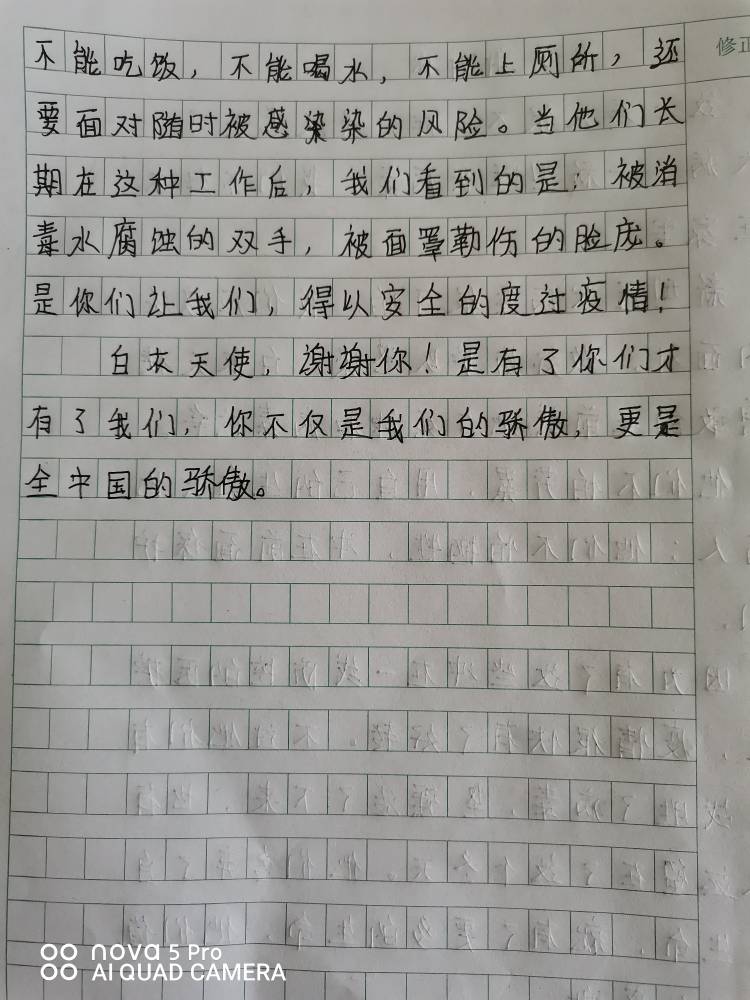 不能吃饭，不能喝水，不能上厕所，还
修正
要面对随时被感染染的风险。当他们长
期在这种工作后，我们看到的是：被消
毒水腐蚀的双手，被面罩勒伤的脸庞。
是你们让我们，得以安全的度过疫情！
白衣天使，谢谢你！是有了你们才
有了我们，你不仅是我们的骄傲，更是
全中国的骄傲。
nova 5 Pro
AI QUAD CAMERA